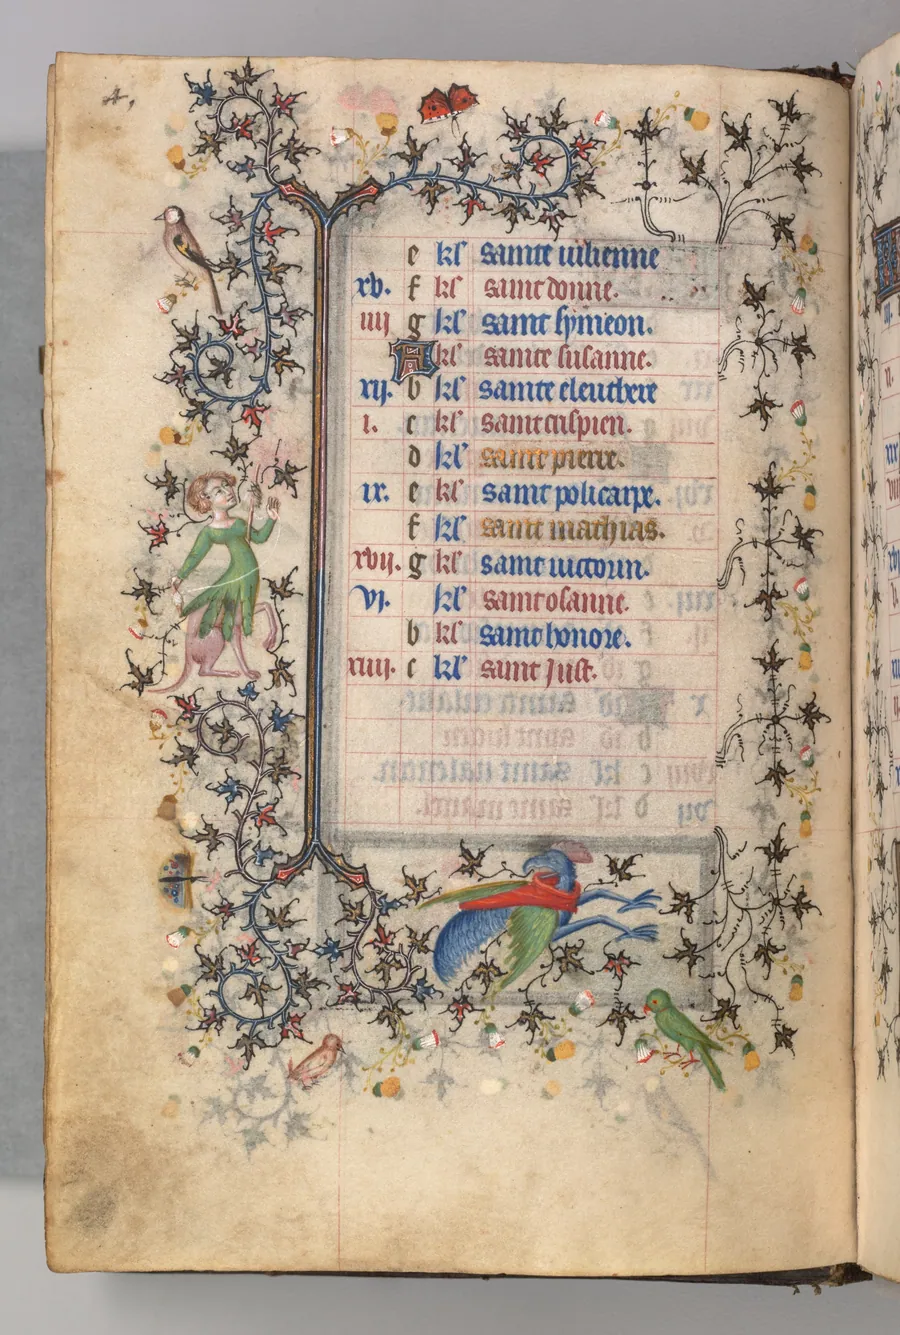 4.
e kl' sainte iulienne
xv. f kl' saint donne.
iiii g kl' saint symeon.
A kl' sainte susanne.
xii. b kl' sainte eleuthere
i. c kl' saint cuspien.
d kl' saint pierre.
ix. e kl' saint policarpe.
f kl' saint mathias.
xvii. g kl' saint uictorin.
vi. kl' saint osanne.
b kl' saint honore.
xiiii. c kl' saint just.